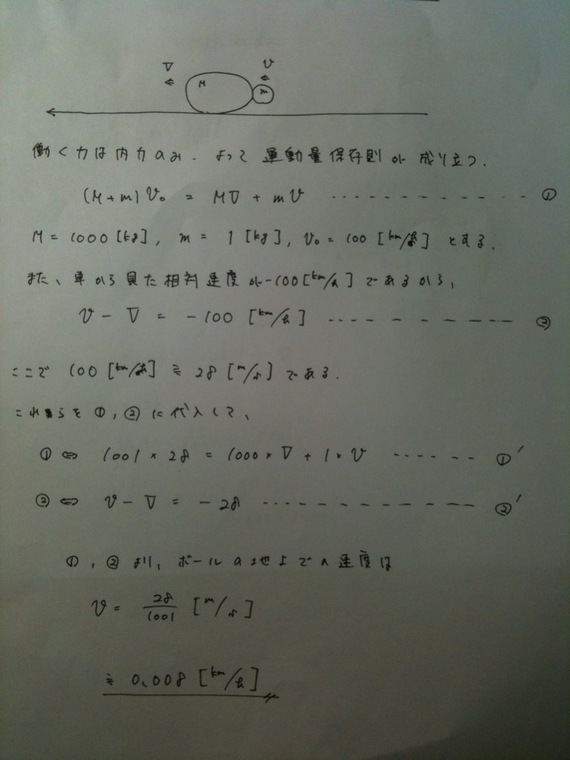 V
v
M
m
働く力は内力のみ. よって 運動量保存則が 成り立つ.
(M+m)v₀ = MV + mv ………… ①
M = 1000 [kg], m = 1 [kg], v₀ = 100 [km/h] とする.
また、車から見た相対速度が-100[km/h] であるから、
v - V = -100 [km/h] ………… ②
ここで 100 [km/h] ≒ 28 [m/s] である.
これらを ①, ② に代入して、
① ⇔ 1001 × 28 = 1000 × V + 1 × v ………… ①'
② ⇔ v - V = -28 ………… ②'
①, ② より, ボールの地上での速度は
v = 28/1001 [m/s]
≒ 0.008 [km/h]